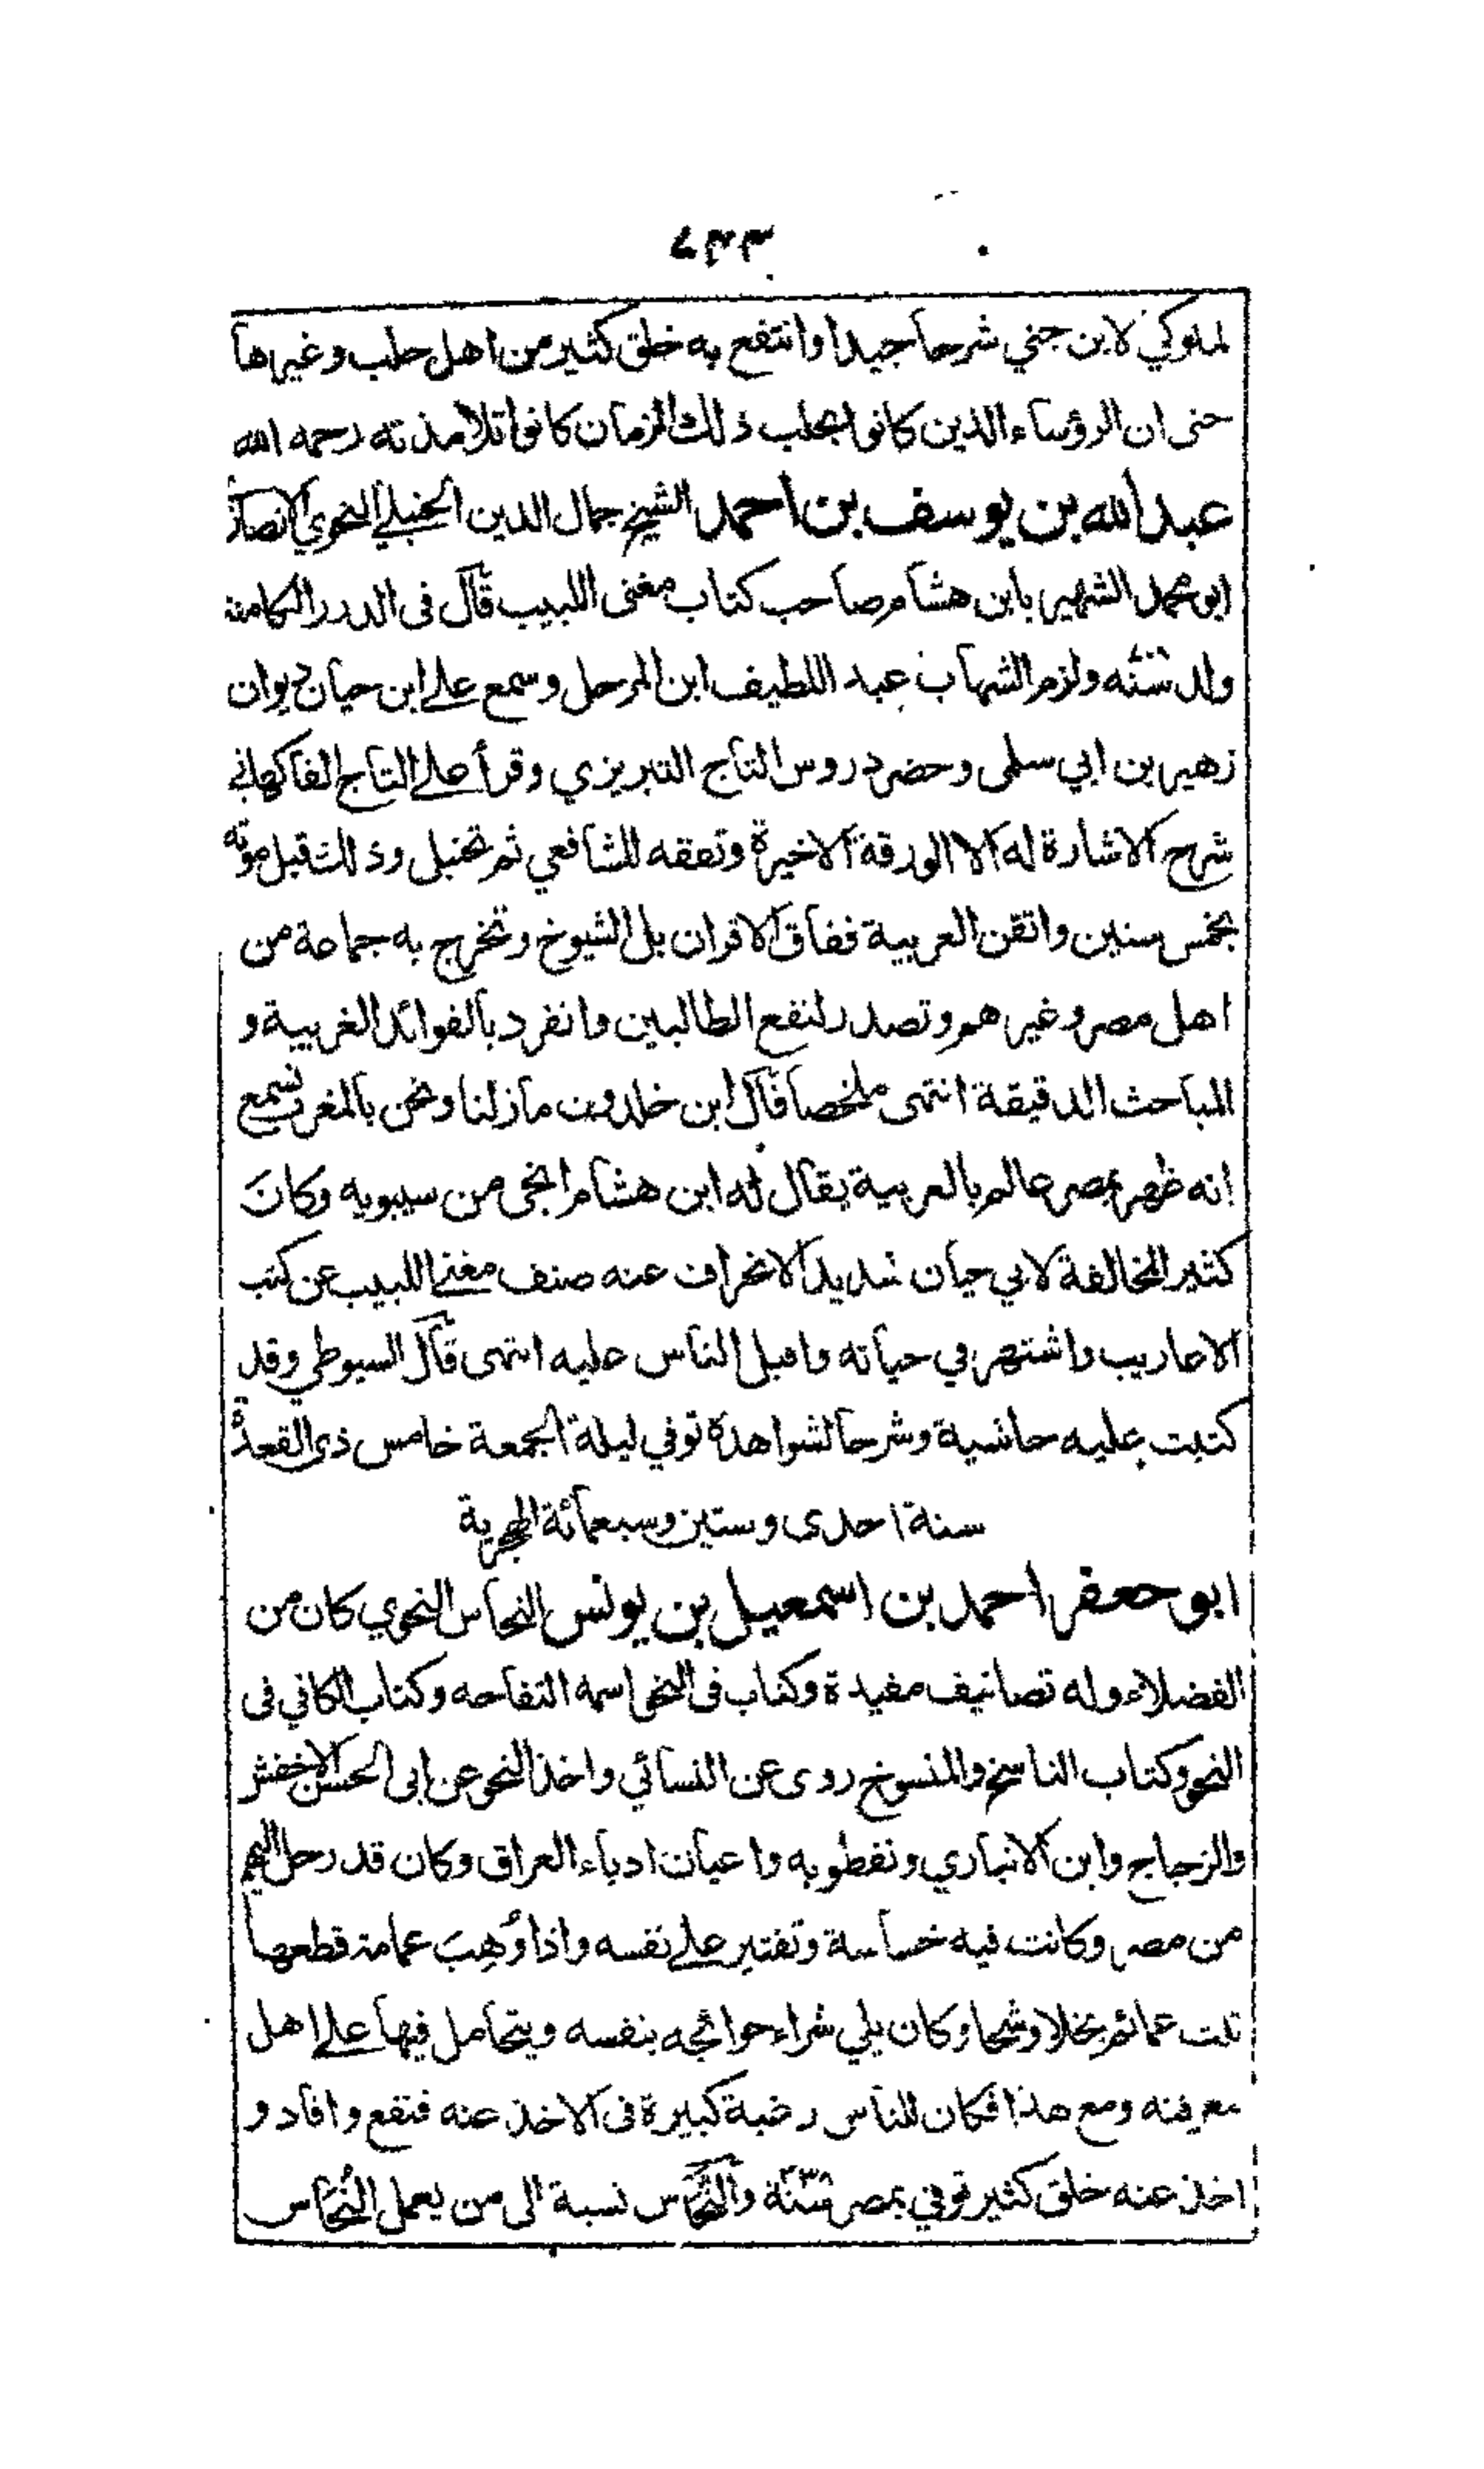 ٧٣٣
لملوكي لابن جني شرحا جيدا وانتفع به خلق كثير من اهل حلب وغيرها
حتى ان الرؤساء الذين كانوا بحلب ذلك الزمان كانوا تلامذته رحمه الله
عبد الله بن يوسف بن احمد الشيخ جمال الدين الحنبلي النحوي الانصار
ابو محمد الشهير بابن هشام صاحب كتاب مغنى اللبيب قال فى الدرر الكامنة
ولد سنه ولزم الشهاب عبد اللطيف ابن المرحل وسمع على ابن حيان ديوان
زهير بن ابي سلمى وحضر دروس التاج التبريزي وقرأ على التاج الفاكهاني
شرح الاشارة له الا الورقة الاخيرة وتفقه للشافعي ثم تحنبل وذلك قبل موته
بخمس سنين واتقن العربية ففاق الاقران بل الشيوخ وتخرج به جماعة من
اهل مصر وغيرهم وتصدر لنفع الطالبين وانفرد بالفوائد الغريبة و
المباحث الدقيقة انتهى ملخصا قال ابن خلدون ما زلنا ونحن بالمغرب نسمع
انه ظهر بمصر عالم بالعربية يقال له ابن هشام انحى من سيبويه وكان
كثير المخالفة لابي حيان شديد الانحراف عنه صنف مغنى اللبيب عن كتب
الاعاريب واشتهر في حياته واقبل الناس عليه انتهى قال السيوطي وقد
كتبت عليه حاشية وشرحا لشواهده توفي ليلة الجمعة خامس ذى القعدة
سنة احدى وستين وسبعمائة الهجرية
ابو جعفر احمد بن اسمعيل بن يونس النحاس النحوي كان من
الفضلاء وله تصانيف مفيدة وكتاب فى النحو اسمه التفاحه وكتاب الكافي فى
النحو وكتاب الناسخ والمنسوخ روى عن النسائي واخذ النحو عن ابى الحسن الاخفش
والزجاج وابن الانباري ونفطويه واعيان ادباء العراق وكان قد رحل اليهم
من مصر وكانت فيه خساسة وتقتير على نفسه واذا وُهِبَ عمامة قطعها
ثلث عمائم بخلا وشحا وكان يلي شراء حوائجه بنفسه ويتحامل فيها على اهل
معرفته ومع هذا فكان للناس رغبة كبيرة فى الاخذ عنه فنفع وافاد و
اخذ عنه خلق كثير توفي بمصر سنة ٣٣٨ والنحاس نسبة الى من يعمل النُحاس